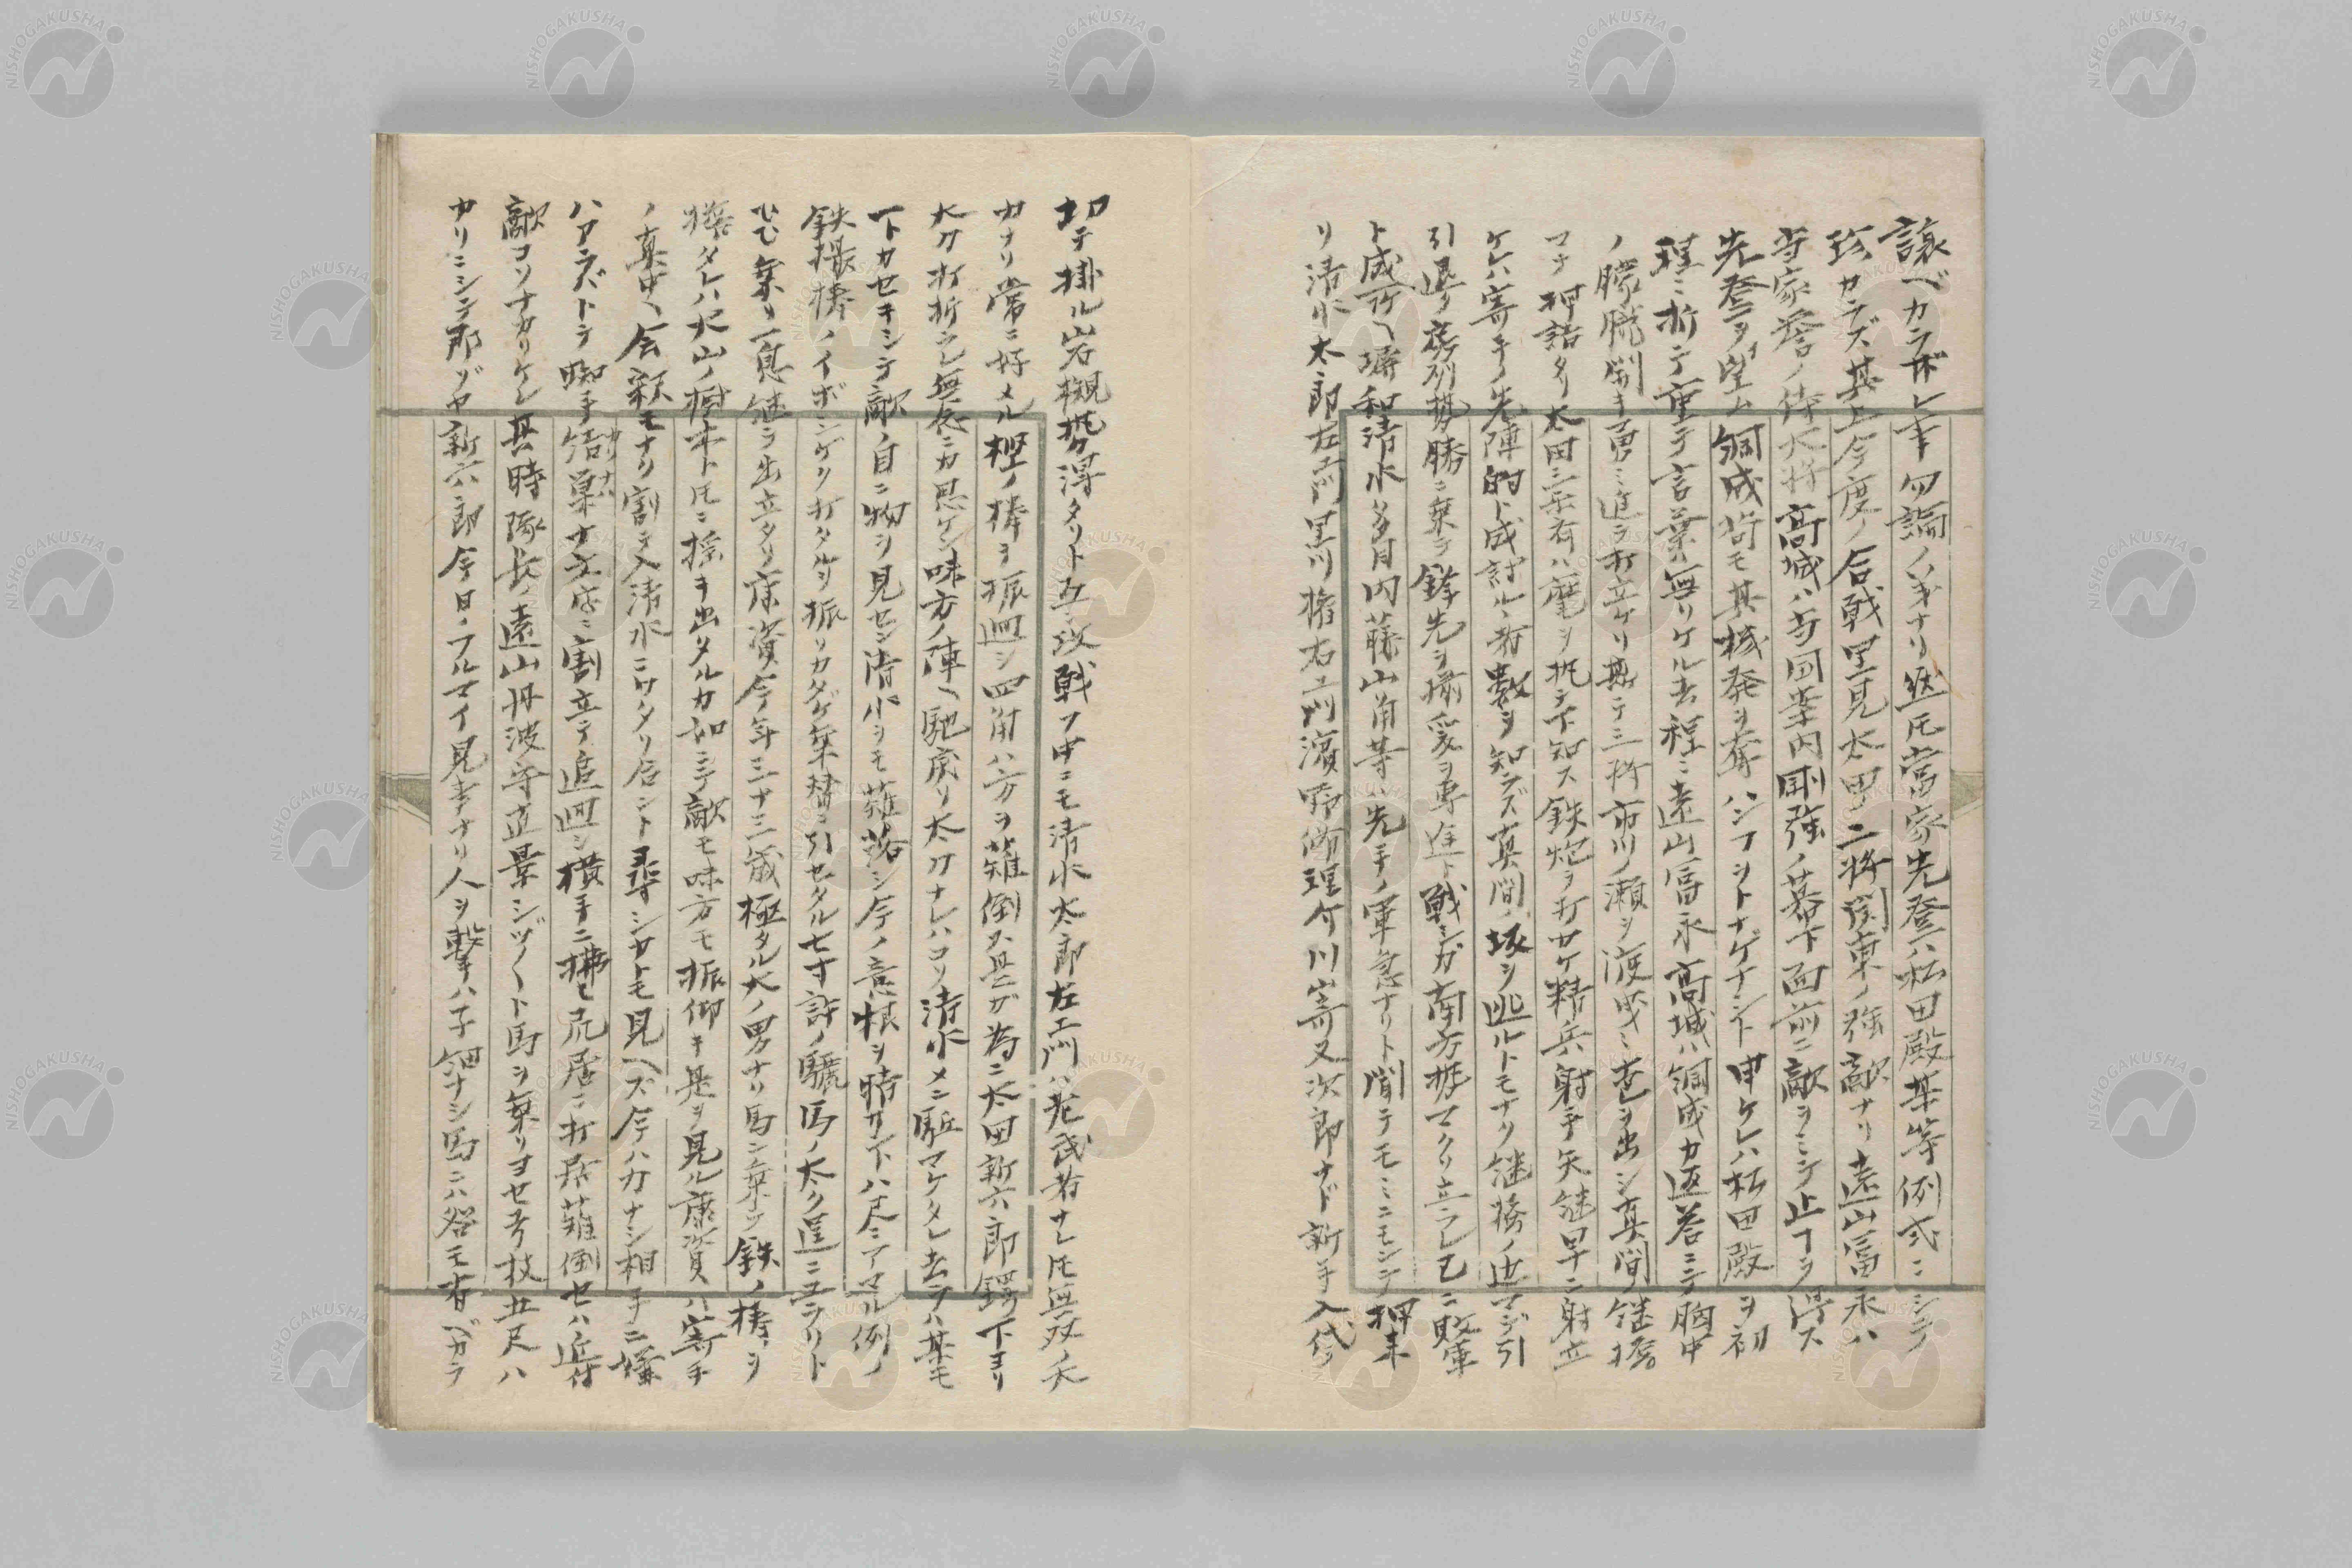 譲ベカラザレ事勿論ノ義ナリ然𪜈當家先登ハ松田殿某等例式ニシテ
珍カラズ其上今度ノ合戦里見太田ノ二将関東ノ強敵ナリ遠山冨永ハ
当家譽ノ侍大将高城ハ当国案内剛強ノ幕下面前ニ敵ヲミテ止コヲ得ス
先登ヲ望ム綱成苟モ其機発ヲ奪ハンコヲトナゲナシト申ケレハ松田殿ヲ初
理ニ折テ重テ言葉ハ無リケル去程ニ遠山冨永高城ハ綱成カ返荅ニテ胸中
ノ朦朧開キ勇ミ進テ打立ケリ斯テ三将市川ノ瀬ヲ渡シ
マテ押詰タリ太田三楽斎ハ麾ヲ抵テ下知ス鉄炮ヲ打カケ精兵射手矢継早ニ射立
ケレハ寄手ノ先陣的ト成討ルヽ者数ヲ知ラズ真間ノ坂ヲ逃ルトモナク継橋ノ辺マデ引
引退ク房州勢勝ニ乗テ鋒先ヲ揃爰ヲ専途ト戦シガ南方勢マクリ立ラレ已ニ敗軍
ト成所ヘ塀和清水多目内藤山角等ハ先手ノ軍急ナリト聞テモミニモンテ押来
リ清水太郎左エ門黒川権右エ門濱野修理介川嵜又次郎ナド新手入代
切テ掛ル岩槻勢得タリト互ニ攻戦フ中ニモ清水太郎左エ門ハ老武者ナレ𪜈無双ノ大
カナリ常ニ好メル樫ノ棒ヲ振廻シ四角八方ヲ薙倒ス是ガ為ニ太田新六郎鍔下ヨリ
太刀打折ラレ無念ニカ思ケン味方ノ陣ヘ馳戻リ太刀ナレハコソ清水メニ駈マケタレ去ラハ某モ
一トカセキシテ敵ノ自ニ物ヲ見セン清水ヲモ薙落シ今ノ意恨ヲ晴サント八尺ニアマル例ノ
鉄撮棒ノイボシゲク打タルヲ振リカタゲ乗替ニ引セタル七寸許ノ驪馬ノ太ク逞ニユラリト
ヒヒ乗リ一息継ラ出立タリ康資今年三十三歳極タル大ノ男ナリ馬ニ乗ツ鉄ノ棒ヲ
携タレハ大山ノ樹木ト𪜈ニ揺キ出タルカ如ニテ敵モ味方モ振仰キ是ヲ見ル康資ハ寄手
ノ真中ヘ会釈モナリ割テ入清水ニワタリ合ント尋シカトモ見ヘズ今ハカナシ相手ニ嫌
ハアラズトテ蜘手結菓十文字ニ割立テ追廻シ横手ニ拂ヒ尻居ニ打居薙倒セハ近付
敵コソナカリケレ其時隊長遠山丹波守直景シヅ〱ト馬ヲ乗リヨセ芳技廿尺ハ
カリニシテ那ゾヤ新六郎今日ノフルマイ見事ナリ人ヲ撃ハ子細ナシ馬ニハ咎モ有ベカラ